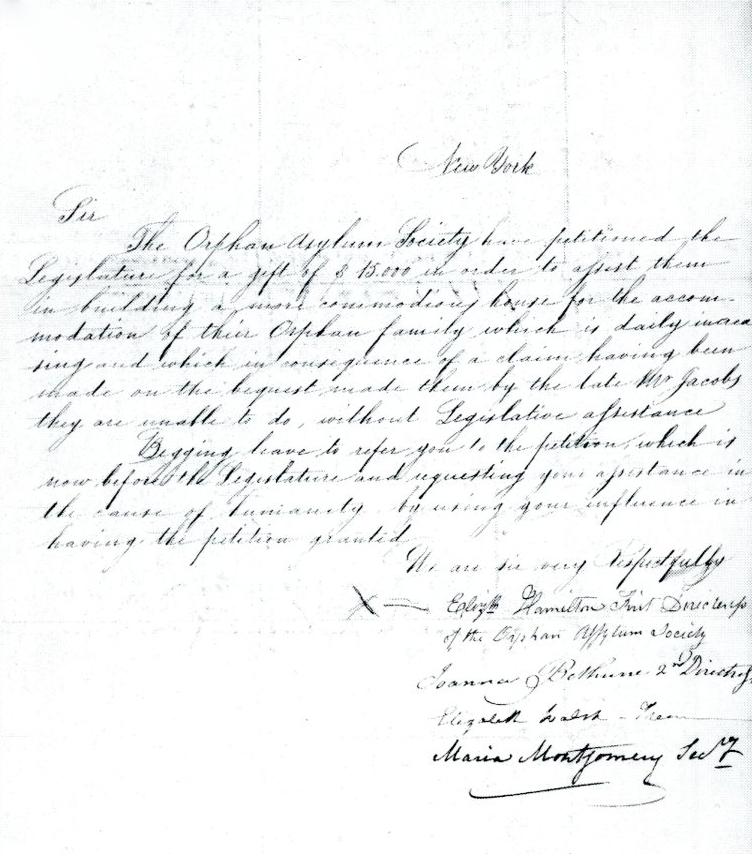 New York
Sir
The Orphan Asylum Society have petitioned the
Legislature for a gift of $ 15.000 in order to assist them
in building a more commodious house for the accom-
modation of their Orphan family which is daily increa
sing and which in consequence of a claim having been
made on the bequest made them by the late Mr Jacobs
they are unable to do, without Legislative assistance
Begging leave to refer you to the petition, which is
now before the Legislature and requesting your assistance in
the cause of humanity by using your influence in
having the petition granted
We are sir very Respectfully
Elizth Hamilton First Directress
of the Orphan Assylum Society
Joanna Bethune 2nd Directress
Elizabeth Walsh - Trea
Maria Montgomery Secry